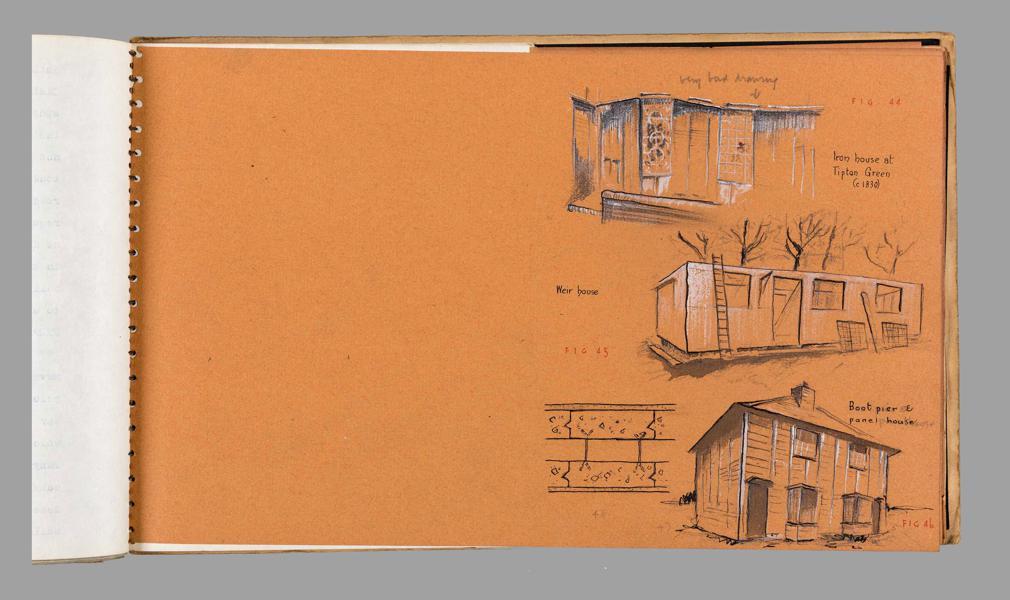 very bad drawing
FIG. 44
Iron house at
Tipton Green
(c 1830)
Weir house
FIG 45
Boot pier &
panel house
FIG 46